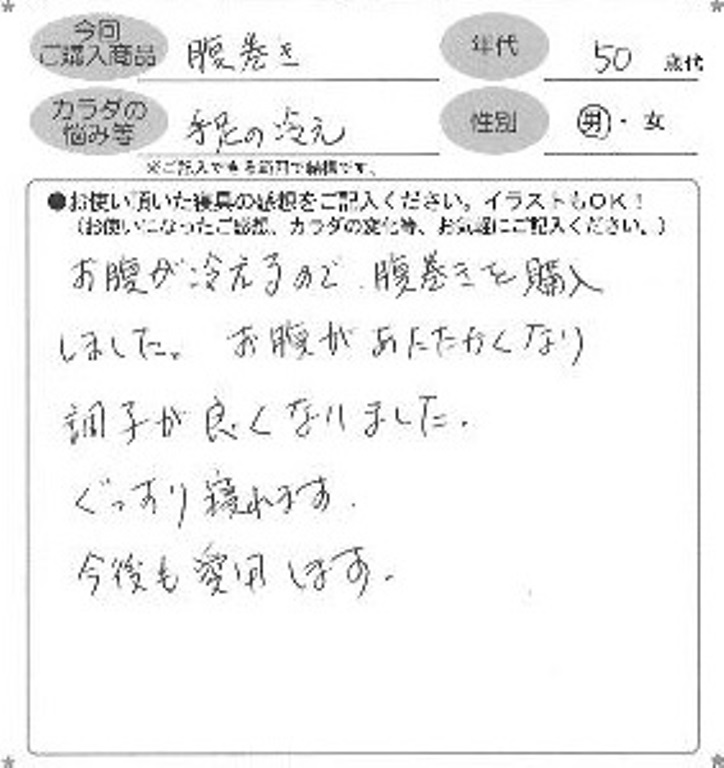 今回
ご購入商品
腹巻き
年代
50 歳代
カラダの
悩み等
手足の冷え
性別
男・女
※ご記入できる範囲で結構です。
●お使い頂いた寝具の感想をご記入ください。イラストもOK!
(お使いになったご感想、カラダの変化等、お気軽にご記入ください。)
お腹が冷えるので、腹巻きを購入
しました。 お腹があたたかくなり
調子が良くなりました。
ぐっすり寝れます。
今後も愛用します。